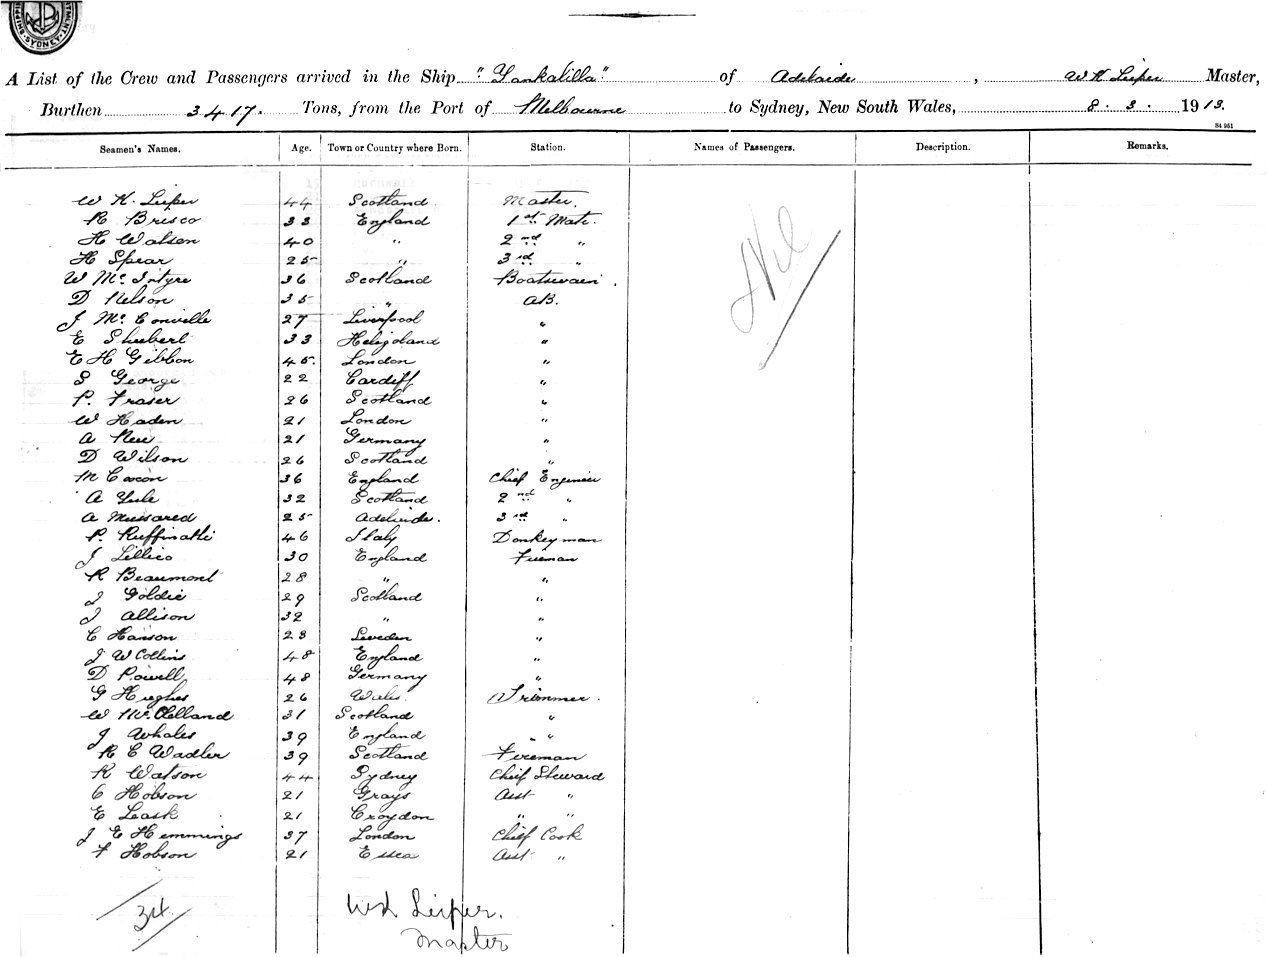 SYDNEY
A List of the Crew and Passengers arrived in the Ship "Yankalilla" of Adelaide, W K Leiper Master,
Burthen 3417. Tons, from the Port of Melbourne to Sydney, New South Wales, 8. 3. 1913.
84 951
Seamen's Names. Age. Town or Country where Born. Station. Names of Passengers. Description. Remarks.
W K. Leiper 44 Scotland Master.
R Brisco 33 England 1st Mate. Nil
H Watson 40 " 2nd "
H Spear 25 " 3rd "
W Mc Intyre 36 Scotland Boatswain.
D Nelson 35 " AB.
J Mc Conville 27 Liverpool "
E Shubert 33 Heligoland "
E H Gibbon 45. London "
S George 22 Cardiff "
P. Fraser 26 Scotland "
W Haden 21 London "
A 21 Germany "
D Wilson 26 Scotland "
M 36 England Chief Engineer
A Yule 32 Scotland 2nd "
A Mussared 25 Adelaide. 3rd "
P. Ruffinatti 46 Italy Donkeyman
J Lillico 30 England Fireman
R Beaumont 28 " "
J Goldie 29 Scotland "
J Allison 32 " "
C Hanson 28 Sweden "
J W Collins 48 England "
D Powell 48 Germany "
G Hughes 26 Wales Trimmer.
W Mc. Clelland 31 Scotland "
J Whales 39 England " "
R C Wadler 39 Scotland Fireman
R Watson 44 Sydney Chief Steward
C Hobson 21 Grays Asst "
E Leask 21 Croydon " "
J E Hemmings 37 London Chief Cook
F Hobson 21 Essex Asst "
34
WK Leiper.
Master